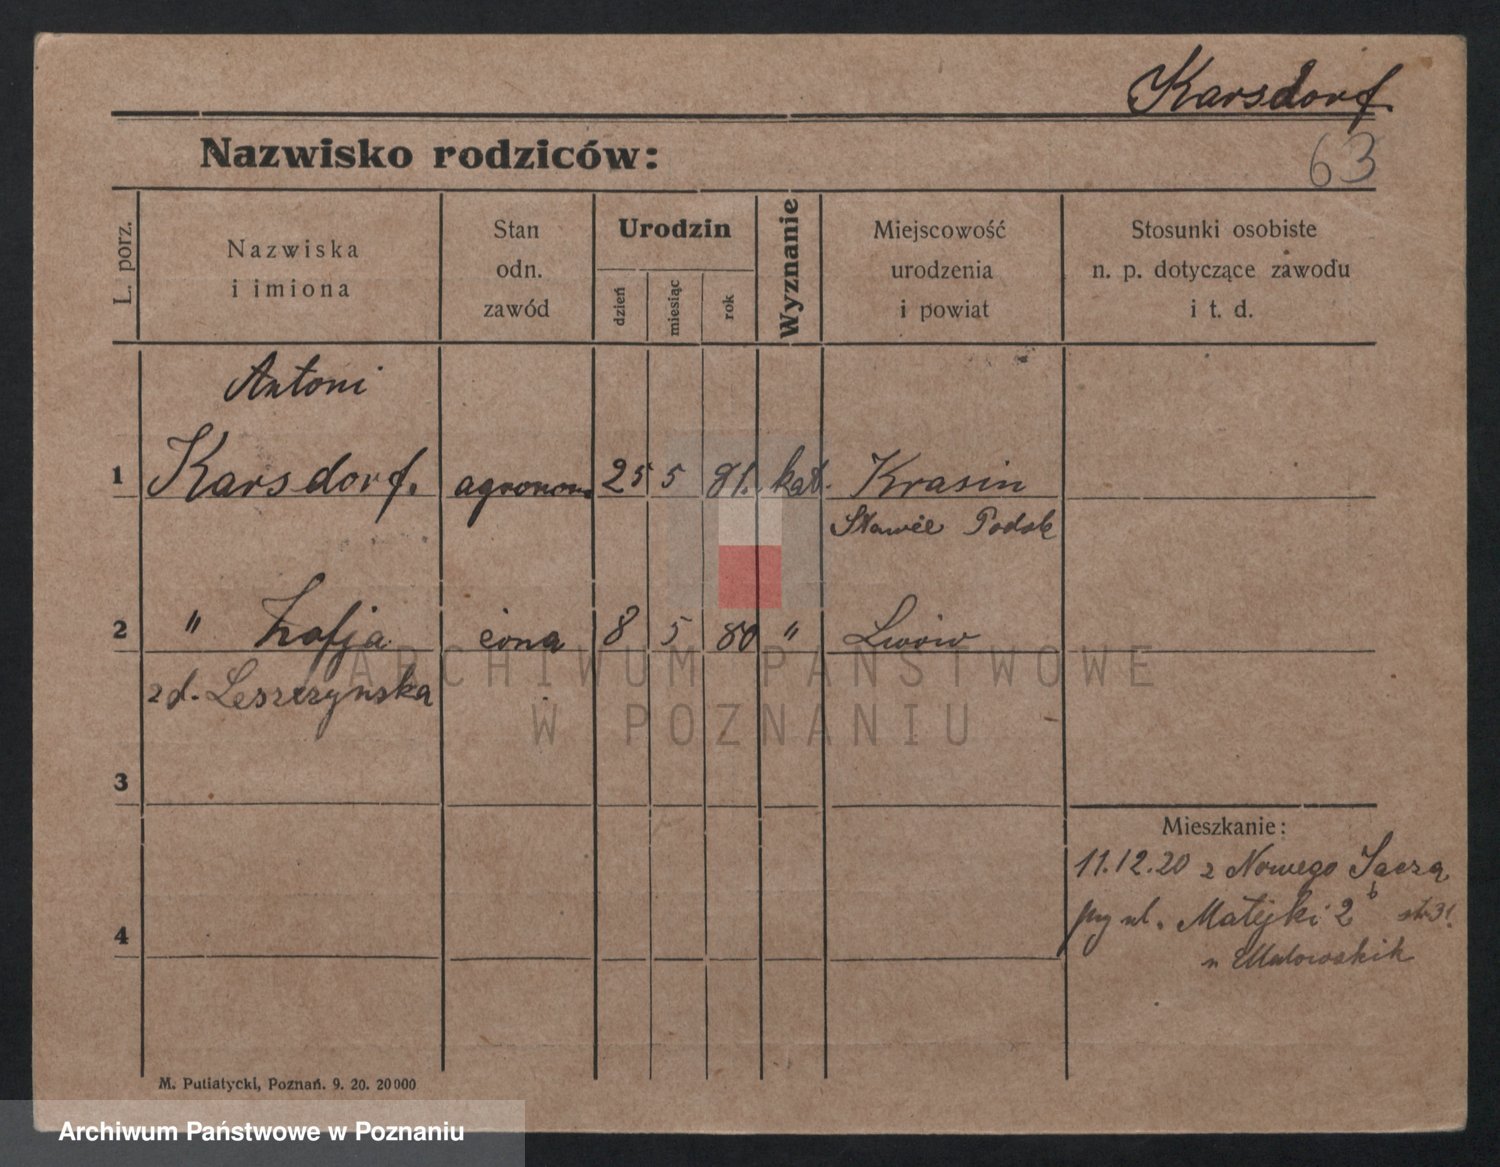 Karsdorf.
Nazwisko rodziców:
63
L. porz.
Nazwiska
i imiona
Stan
odn.
zawód
Urodzin
dzień
miesiąc
rok
Wyznanie
Miejscowość
urodzenia
i powiat
Stosunki osobiste
n. p. dotyczące zawodu
i t. d.
Antoni
1 Karsdorf. agronom 25 5 81. kat. Krasin
Podole
2 " Zofja żona 8 5 80 " Lwów
zd. Leszczynska
ARCHIWUM PAŃSTWOWE
W POZNANIU
3
Mieszkanie:
11.12.20 z Nowego Sącza
przy ul. Matejki 2
4
M. Putiatycki, Poznań. 9. 20. 20000
Archiwum Państwowe w Poznaniu